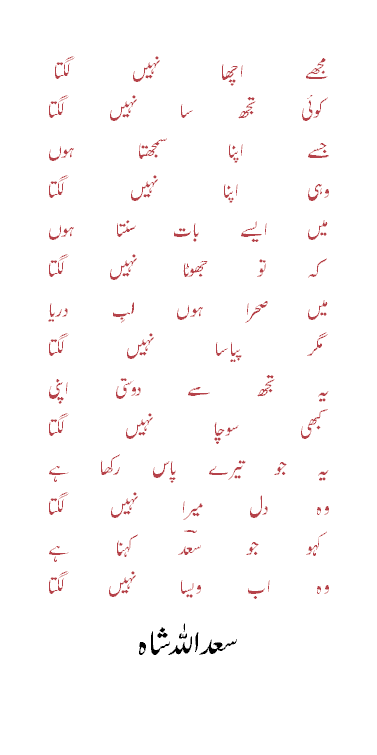 مجھے اچھا نہیں لگتا
کوئی تجھ سا نہیں لگتا
جسے اپنا سمجھتا ہوں
وہی اپنا نہیں لگتا
میں ایسے بات سنتا ہوں
کہ تو جھوٹا نہیں لگتا
میں صحرا ہوں لبِ دریا
مگر پیاسا نہیں لگتا
یہ تجھ سے دوستی اپنی
کبھی سوچا نہیں لگتا
یہ جو تیرے پاس رکھا ہے
وہ دل میرا نہیں لگتا
کہو جو سعدؔ کہنا ہے
وہ اب ویسا نہیں لگتا
سعداللہ شاہ